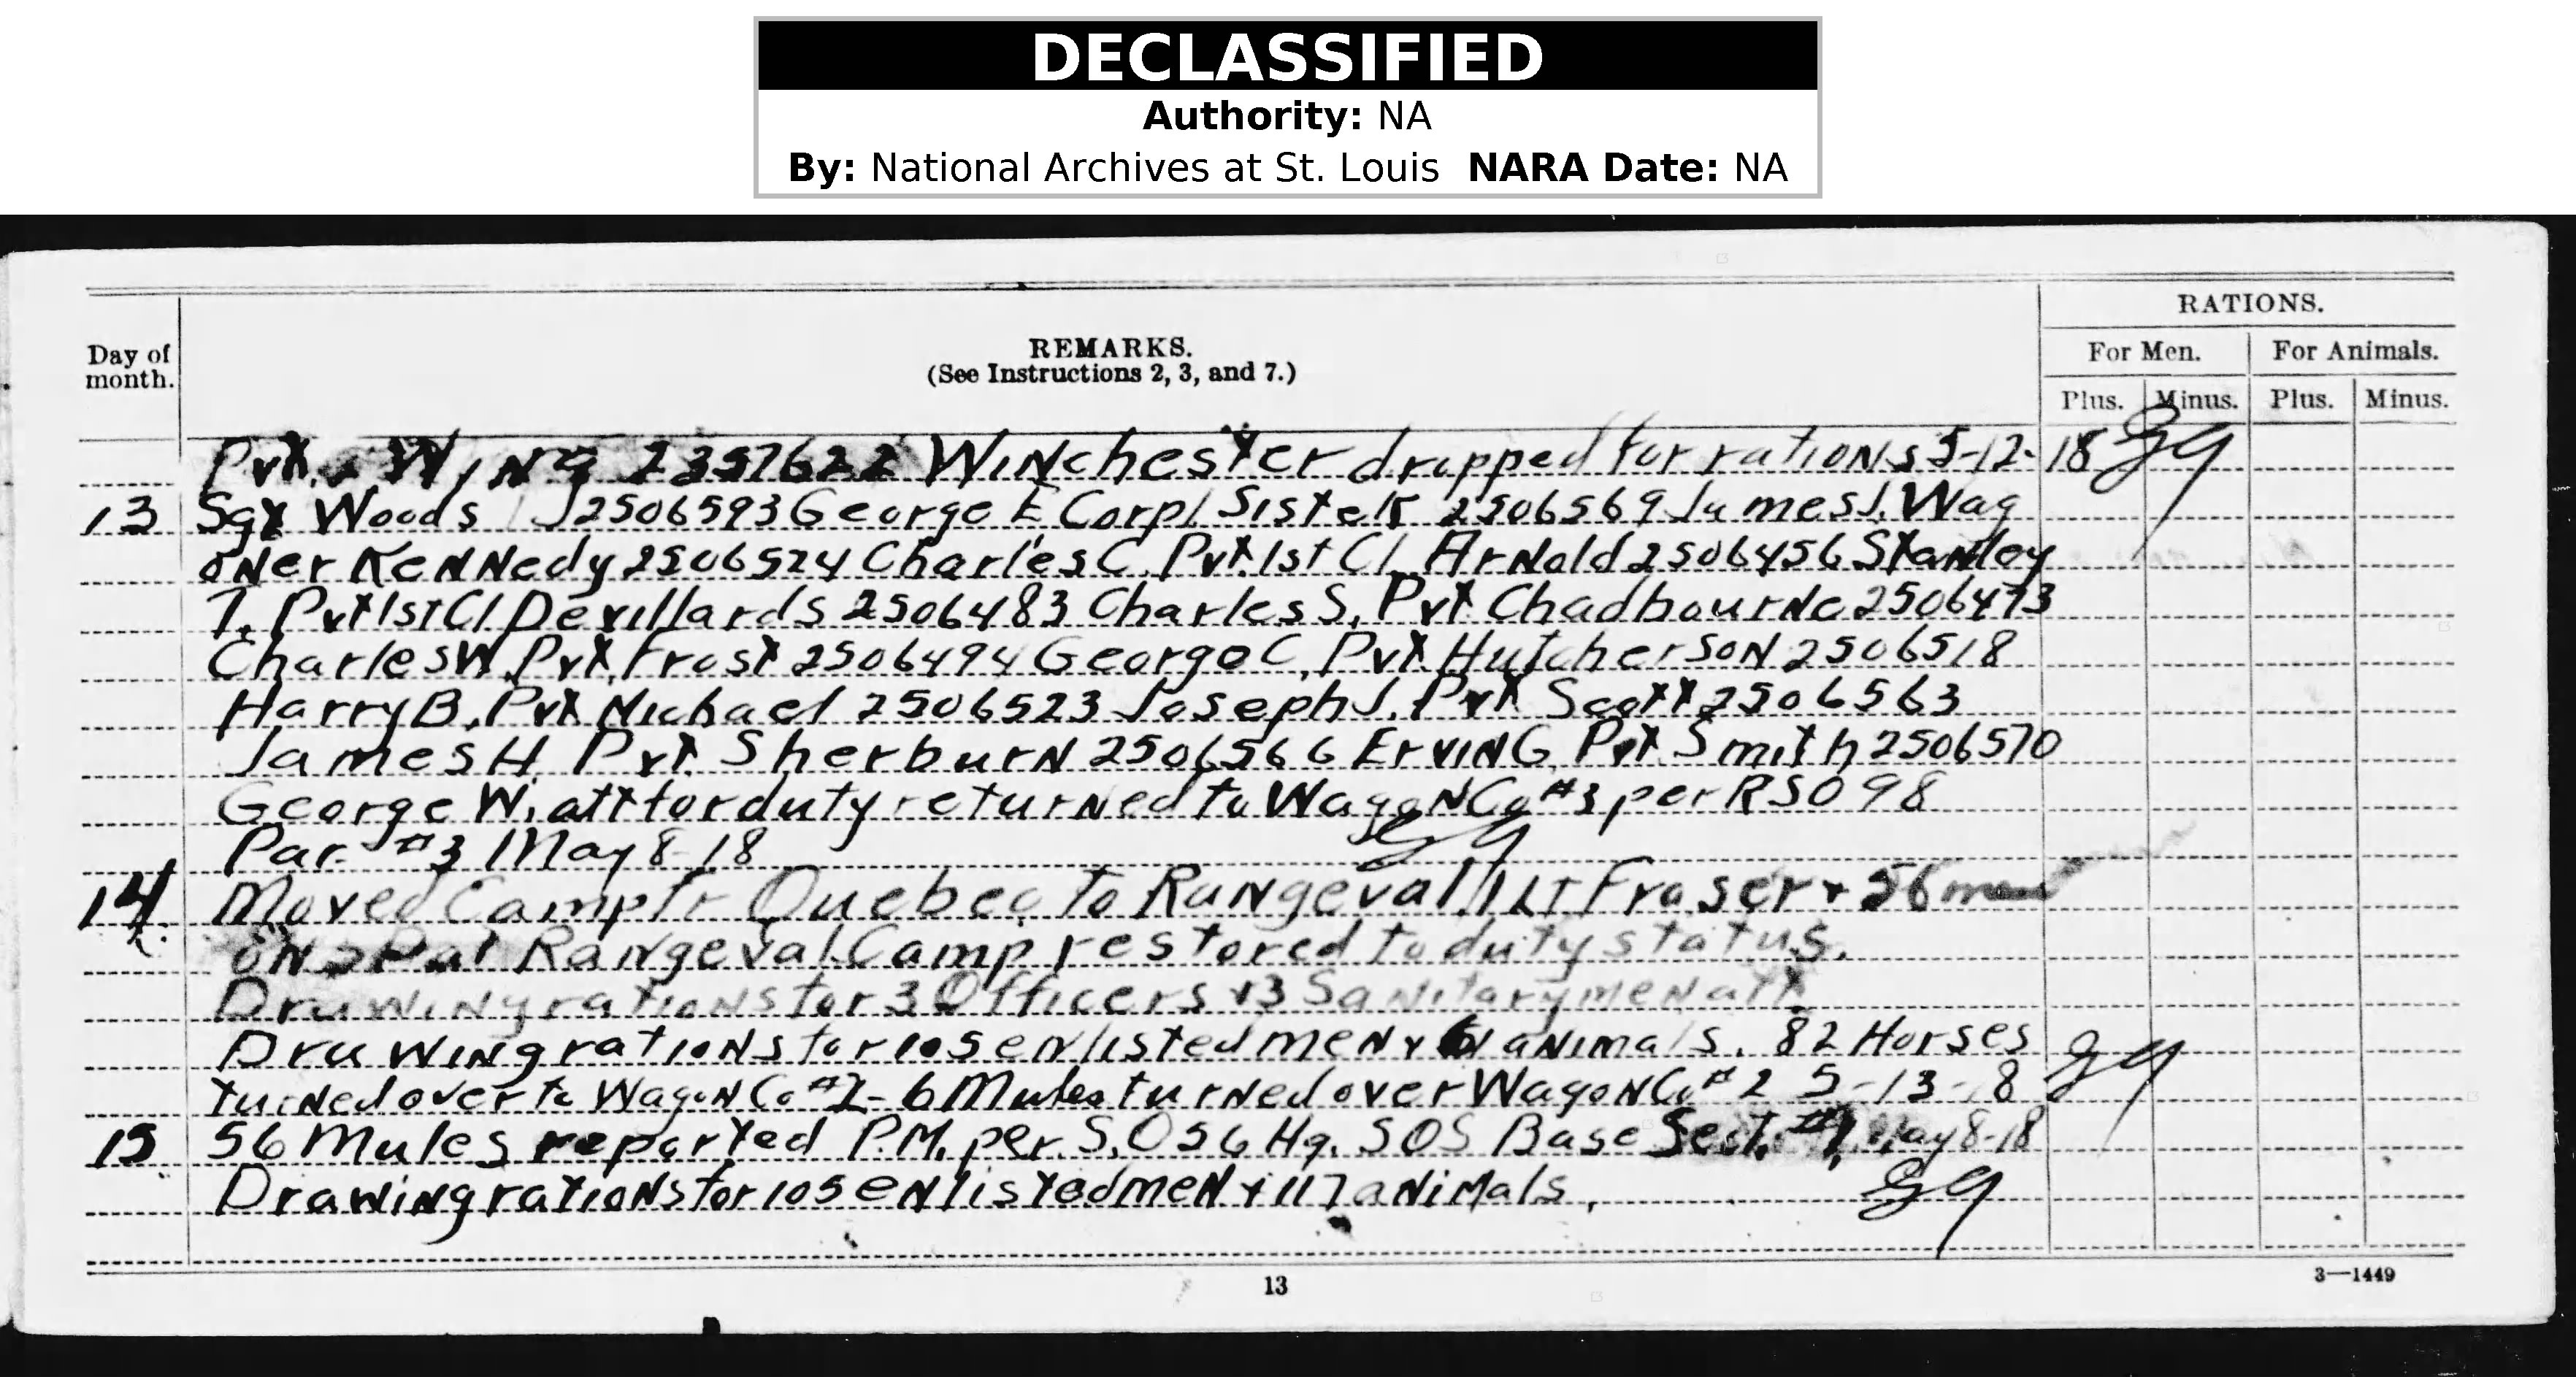 DECLASSIFIED
Authority: NA
By: National Archives at St. Louis NARA Date: NA
RATIONS.
Day of month.
REMARKS.
(See Instructions 2, 3, and 7.)
For Men. For Animals.
Plus. Minus. Plus. Minus.
Pvt. Wing 2357622 Winchester dropped for rations 5-12-18
13 Sgt Woods 2506593 George E Corpl 2506569 James J. Wag
oner Kennedy 2506524 Charles C. Pvt 1st Cl. Arnold 2506456 Stanley
T. Pvt 1st Cl Devillards 2506483 Charles S. Pvt Chadbourne 2506473
Charles W. Pvt. Frost 2506494 George C, Pvt Hutcherson 2506518
Harry B. Pvt Michael 2506523 Joseph J. Pvt Scott 2506563
James H. Pvt. Sherburn 2506566 Ervin G. Pvt Smith 2506570
George W. att for duty returned to Wagon Co #3 per RSO 98
Par. #3 May 8-18
14 Moved Camp fr Quebec to Rangeval 1 Lt Fraser + 56 men
on Rangeval Camp restored to duty status.
Drawing rations for 3 Officers + 3 Sanitary men att
Drawing rations for 105 enlisted men + animals. 82 Horses
turned over to Wagon Co - 6 Mules turned over Wagon Co #2 5-13-18
15 56 Mules reported P.M. per. S.O 56 Hq. SOS Base Sect. #1 May 8-18
Drawing rations for 105 enlisted men + 117 animals.
13
3—1449